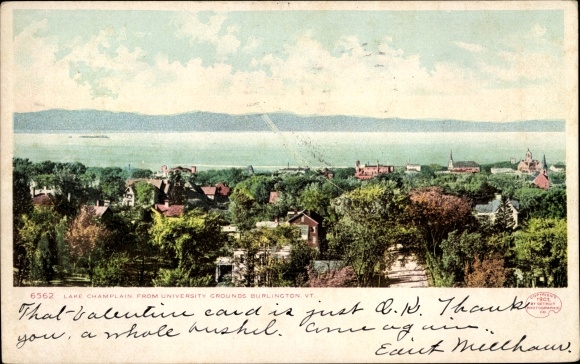 6562 LAKE CHAMPLAIN FROM UNIVERSITY GROUNDS BURLINGTON, VT.
COPYRIGHT
BY DETROIT
PHOTOGRAPHIC
CO.
That Valentine card is just O.K. Thank
you, a whole bushel. Come again.